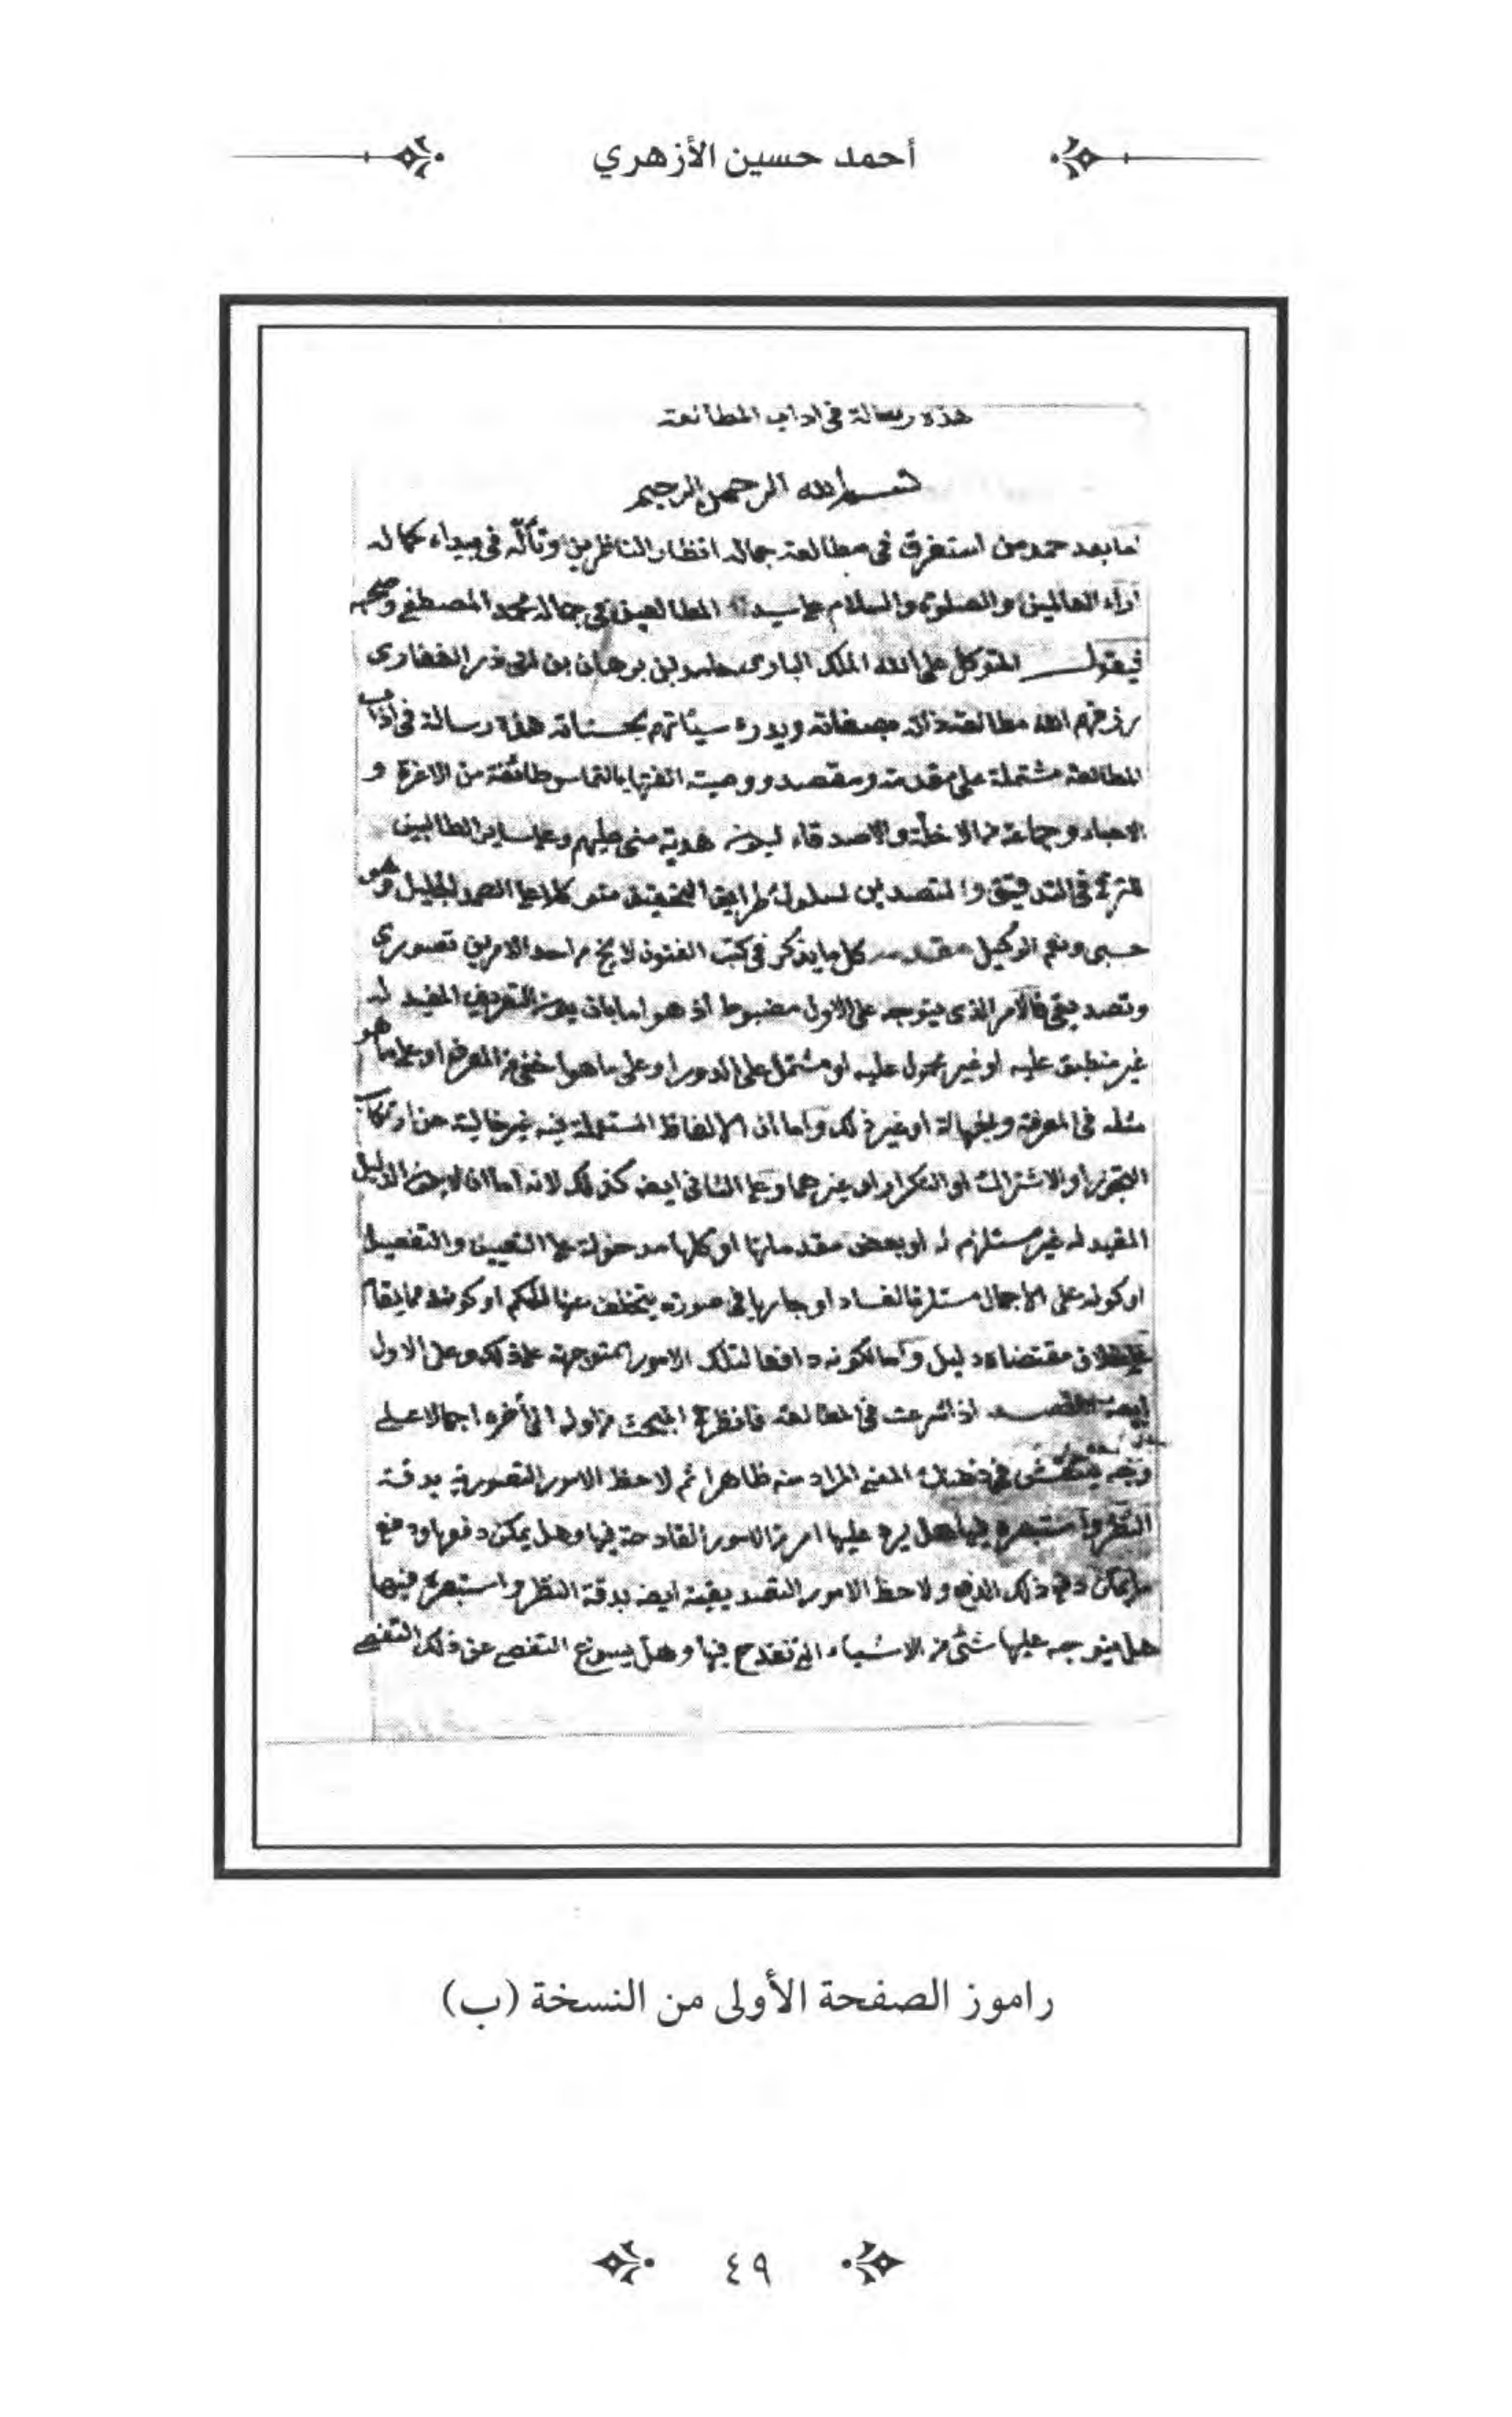 أحمد حسين الأزهري
هذه رسالة في اداب المطالعة
بسم الله الرحمن الرحيم
اما بعد حمد من استغرق في مطالعة جماله انظار الناظرين وتأله في بيداء كماله
اراء العالمين والصلوة والسلام على سيد المطالعين في جماله محمد المصطفى وصحبه
فيقول المتوكل على الله الملك الباري حامد بن برهان بن ابي ذر الغفارى
رزقهم الله مطالعة ذاته وصفاته ويدرء سيئاتهم بحسناته هذه رسالة في اداب
المطالعة مشتملة على مقدمة ومقصد ووصية الفتها بالتماس طائفة من الاعزة و
الاحباء وجماعة من الاخلة والاصدقاء ليكون هدية منى عليهم وعلى ساير الطالبين
في التدقيق والمتصدين لسلوك طرايق التحقيق متوكلا على الصمد الجليل وهو
حسبى ونعم الوكيل مقدمه كل ما يذكر في كتب الفنون لا يخ من احد الامرين تصورى
وتصديقى فالامر الذى يتوجه على الاول مضبوط اذ هو اما بان يكون التعريف المفيد له
غير منطبق عليه او غير محمول عليه او مشتمل على الدور او على ما هو اخفى من المعرف او على ما هو
مثله في المعرفة والجهالة او غير ذلك واما ان الالفاظ المستعملة فيه غير خالية عن ارتكاب
التجوز او الاشتراك او التكرار او غيرهما وعلى الثانى ايضه كذلك لانه اما ان لا يكون الدليل
المفيد له غير مستلزم له او بعض مقدماتها او كلها مدخولة على التعيين والتفصيل
او كونه على الاجمال مستلزما لفساد او جاريا في صورة يتخلف عنها الحكم او كونه مما يقام
على خلاف مقتضاه دليل واما لكونه دافعا لتلك الامور المتوجهة على ذلك وعلى الاول
ايضه المقصد اذا شرعت في المطالعة فانظر الى المبحث من اوله الى أخره اجمالا على
وجه ينتقش في ذهنك المعنى المراد منه ظاهرا ثم لاحظ الامور التصورية بدقة
النظر واستبصر فيها هل يرد عليها امر من الامور القادحة فيها وهل يمكن دفعها ودفع
ما يمكن دفع ذلك الدفع ولاحظ الامور التصديقية ايضه بدقة النظر واستبصر فيها
هل يتوجه عليها شئ من الاشياء التى تقدح فيها وهل يسوغ التفصى عن ذلك التفصى
راموز الصفحة الأولى من النسخة (ب)
٤٩